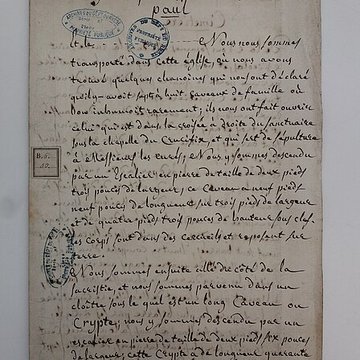 paul
et le Nous nous sommes
transporté dans cette église, ou nous avons
trouvé quelques chanoines qui nos ont déclaré
quelq- avoit sept à huit caveaux de famille où
l'on inhumoit rarement; ils nous ont fait ouvrir
celui qui est dans la croisée à droite du sanctuaire
sous la chapelle du Crucifix, et qui sert de sépulture
à Messieurs les curés, Nous y sommes descendu
par un Escalier en pierre de taille de deux pieds
trois pouces de largeur, ce Caveau a neuf pieds
neuf pouces de longueur sur trois pieds de largeur
et de quatre pieds trois pouces de hauteur sous clef.
les corps sont dans des cercueils et reposent sur
terre.
Nous sommes ensuite allés du côté de la
sacristie, et nous sommes parvenu dans un
cloître sous lequel est un long Caveau ou
Crypte, nous y sommes descendu par un
escalier en pierre de taille de deux pieds six pouces
de largeur, cette Crypte a de longueur quarante
B.6.
10.